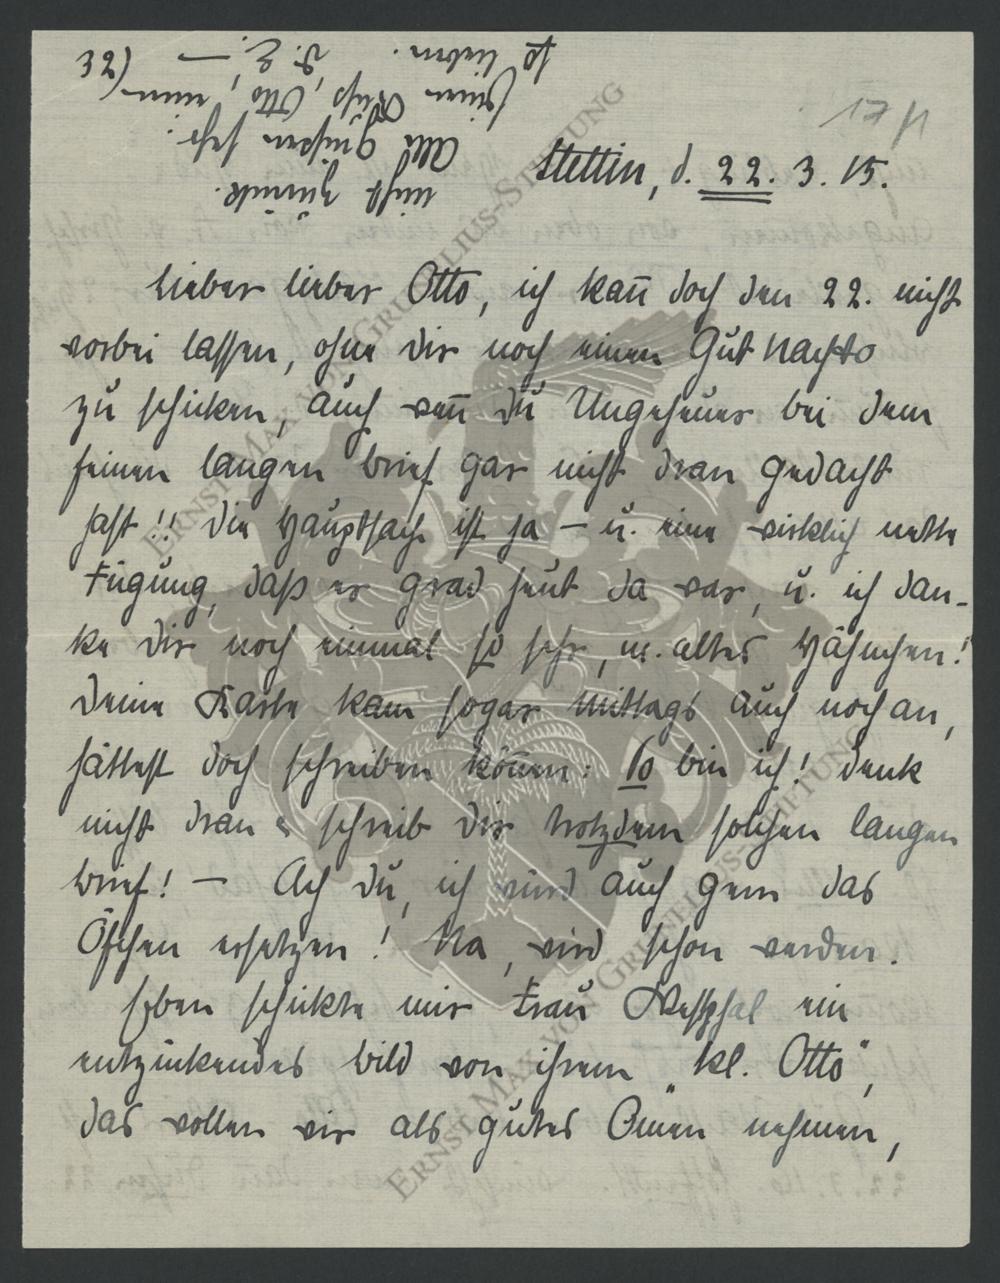 17/1
Stettin, d. 22. 3. 15.
Lieber lieber Otto, ich kan̄ doch den 22. nicht
vorbei lassen, ohne dir noch einen Gut Nacht
zu schicken, auch wen̄ du Ungeheuer bei dem
feinen langen Brief gar nicht dran gedacht
hast!! Die Hauptsach ist ja – u. eine wirklich nette
Fügung, daß er grad heut da war, u. ich dan-
ke dir noch einmal so sehr, m. altes Hähnchen!
Deine Karte kam sogar Mittags auch noch an,
hättest doch schreiben kön̄en: So bin ich! denk
nicht dran u. schreib dir trotzdem solchen langen
Brief! – Ach du, ich würd auch gern das
Öfchen ersetzen! Na, wird schon werden.
Eben schickte mir Frau Westphal ein
entzückendes Bild von ihrem "kl. Otto",
das wollen wir als gutes Omen nehmen,
nicht zurück.
Alle Grüßen sehr.
Einen Kuß, Otto, einen
so lieben. D. E. –
(23
ERNST-MAX VON GRUNELIUS-STIFTUNG
ERNST-MAX VON GRUNELIUS-STIFTUNG